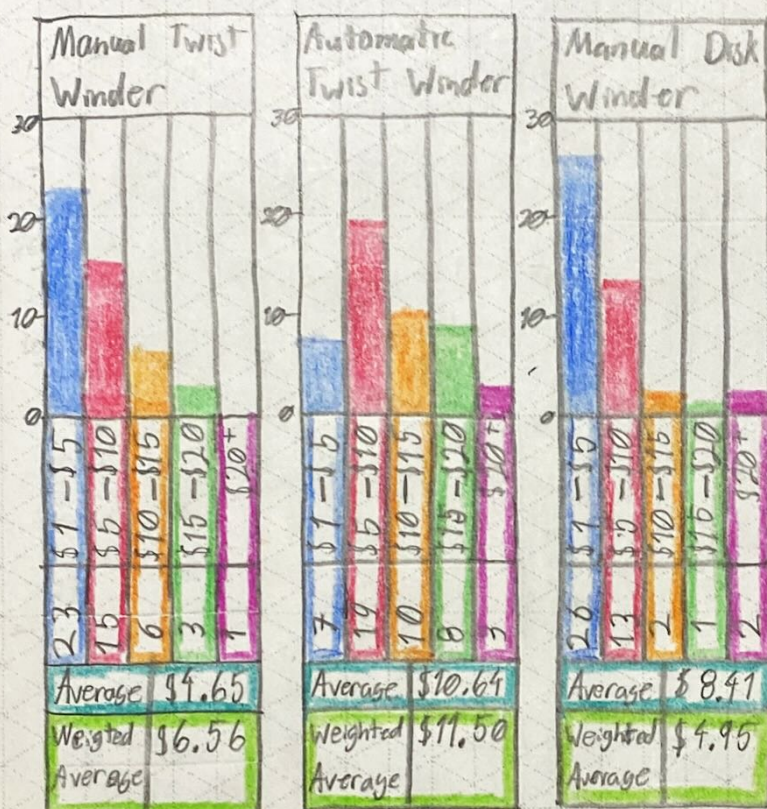 Manual Twist
Winder
30
20
10
0
$1-$5
$5-$10
$10-$15
$15-$20
$20+
23
15
6
3
1
Average $4.65
Weigted $6.56
Average
Automatic
Twist Winder
30
20
10
0
$1-$5
$5-$10
$10-$15
$15-$20
$20+
7
19
10
8
3
Average $10.64
Weighted $11.50
Average
Manual Disk
Winder
30
20
10
0
$1-$5
$5-$10
$10-$15
$15-$20
$20+
26
13
2
1
2
Average $8.41
Weighted $4.95
Average